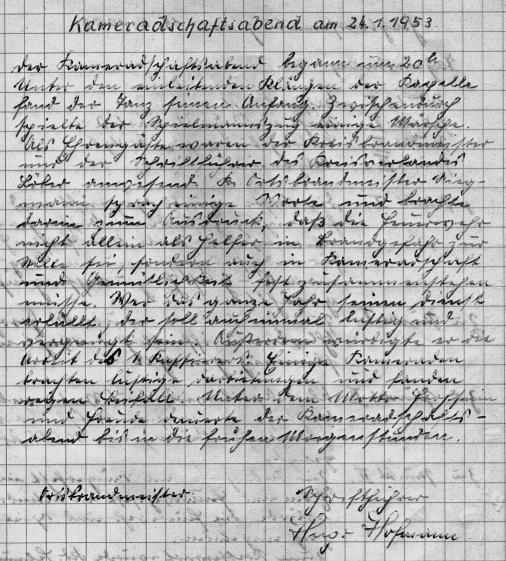 Kameradschaftsabend am 24.1.1953.
Der Kameradschaftsabend begann um 20h
Unter den einleitenden Klängen der Kapelle
fand der Tanz seinen Anfang. Zwischendurch
spielte der Spielmannszug einige Märsche.
Als Ehrengäste waren der Kreisbrandmeister
und der Schriftführer des Kreisverbandes
anwesend. Ortsbrandmeister
sprach einige Worte und brachte
darin zum Ausdruck, daß die Feuerwehr
nicht allein als Helfer in Brandgefahr zur
Stelle sei, sondern auch in Kameradschaft
und Gemütlichkeit fest zusammenstehen
müsse. Wer das ganze Jahr seinen Dienst
erfüllt, der soll auch einmal lustig und
vergnügt sein. Außerdem würdigte er die
Arbeit des Einige Kameraden
brachten lustige Darbietungen und fanden
regen Beifall. Unter dem Motto Frohsinn
und Freude dauerte der Kameradschafts-
abend bis in die frühen Morgenstunden.
Ortsbrandmeister Schriftführer
Hofmann